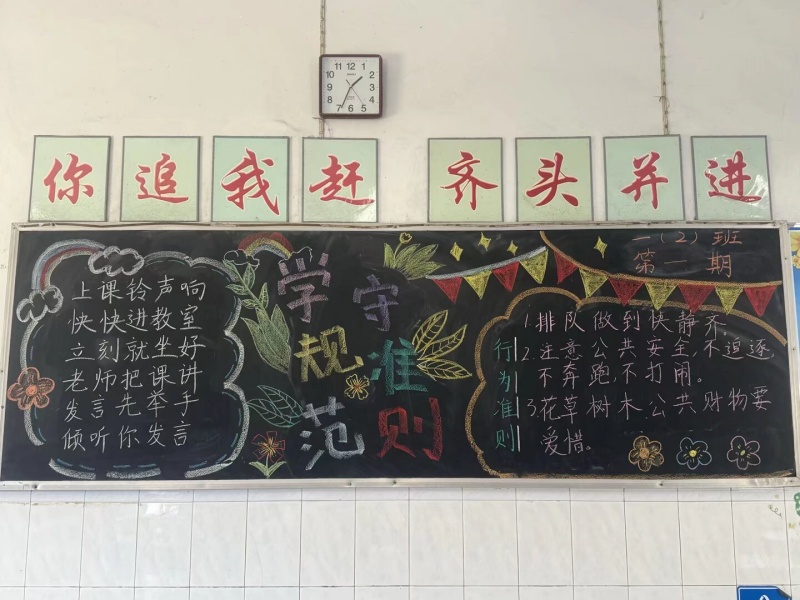 12 1 2 3 4 5 6 7 8 9 10 11
你追我赶 齐头并进
一(2)班
第一期
上课铃声响
快快进教室
立刻就坐好
老师把课讲
发言先举手
倾听你发言
学规范
守准则
行为准则
1.排队做到快静齐.
2.注意公共安全,不追逐,
不奔跑,不打闹。
3.花草树木公共财物要
爱惜。